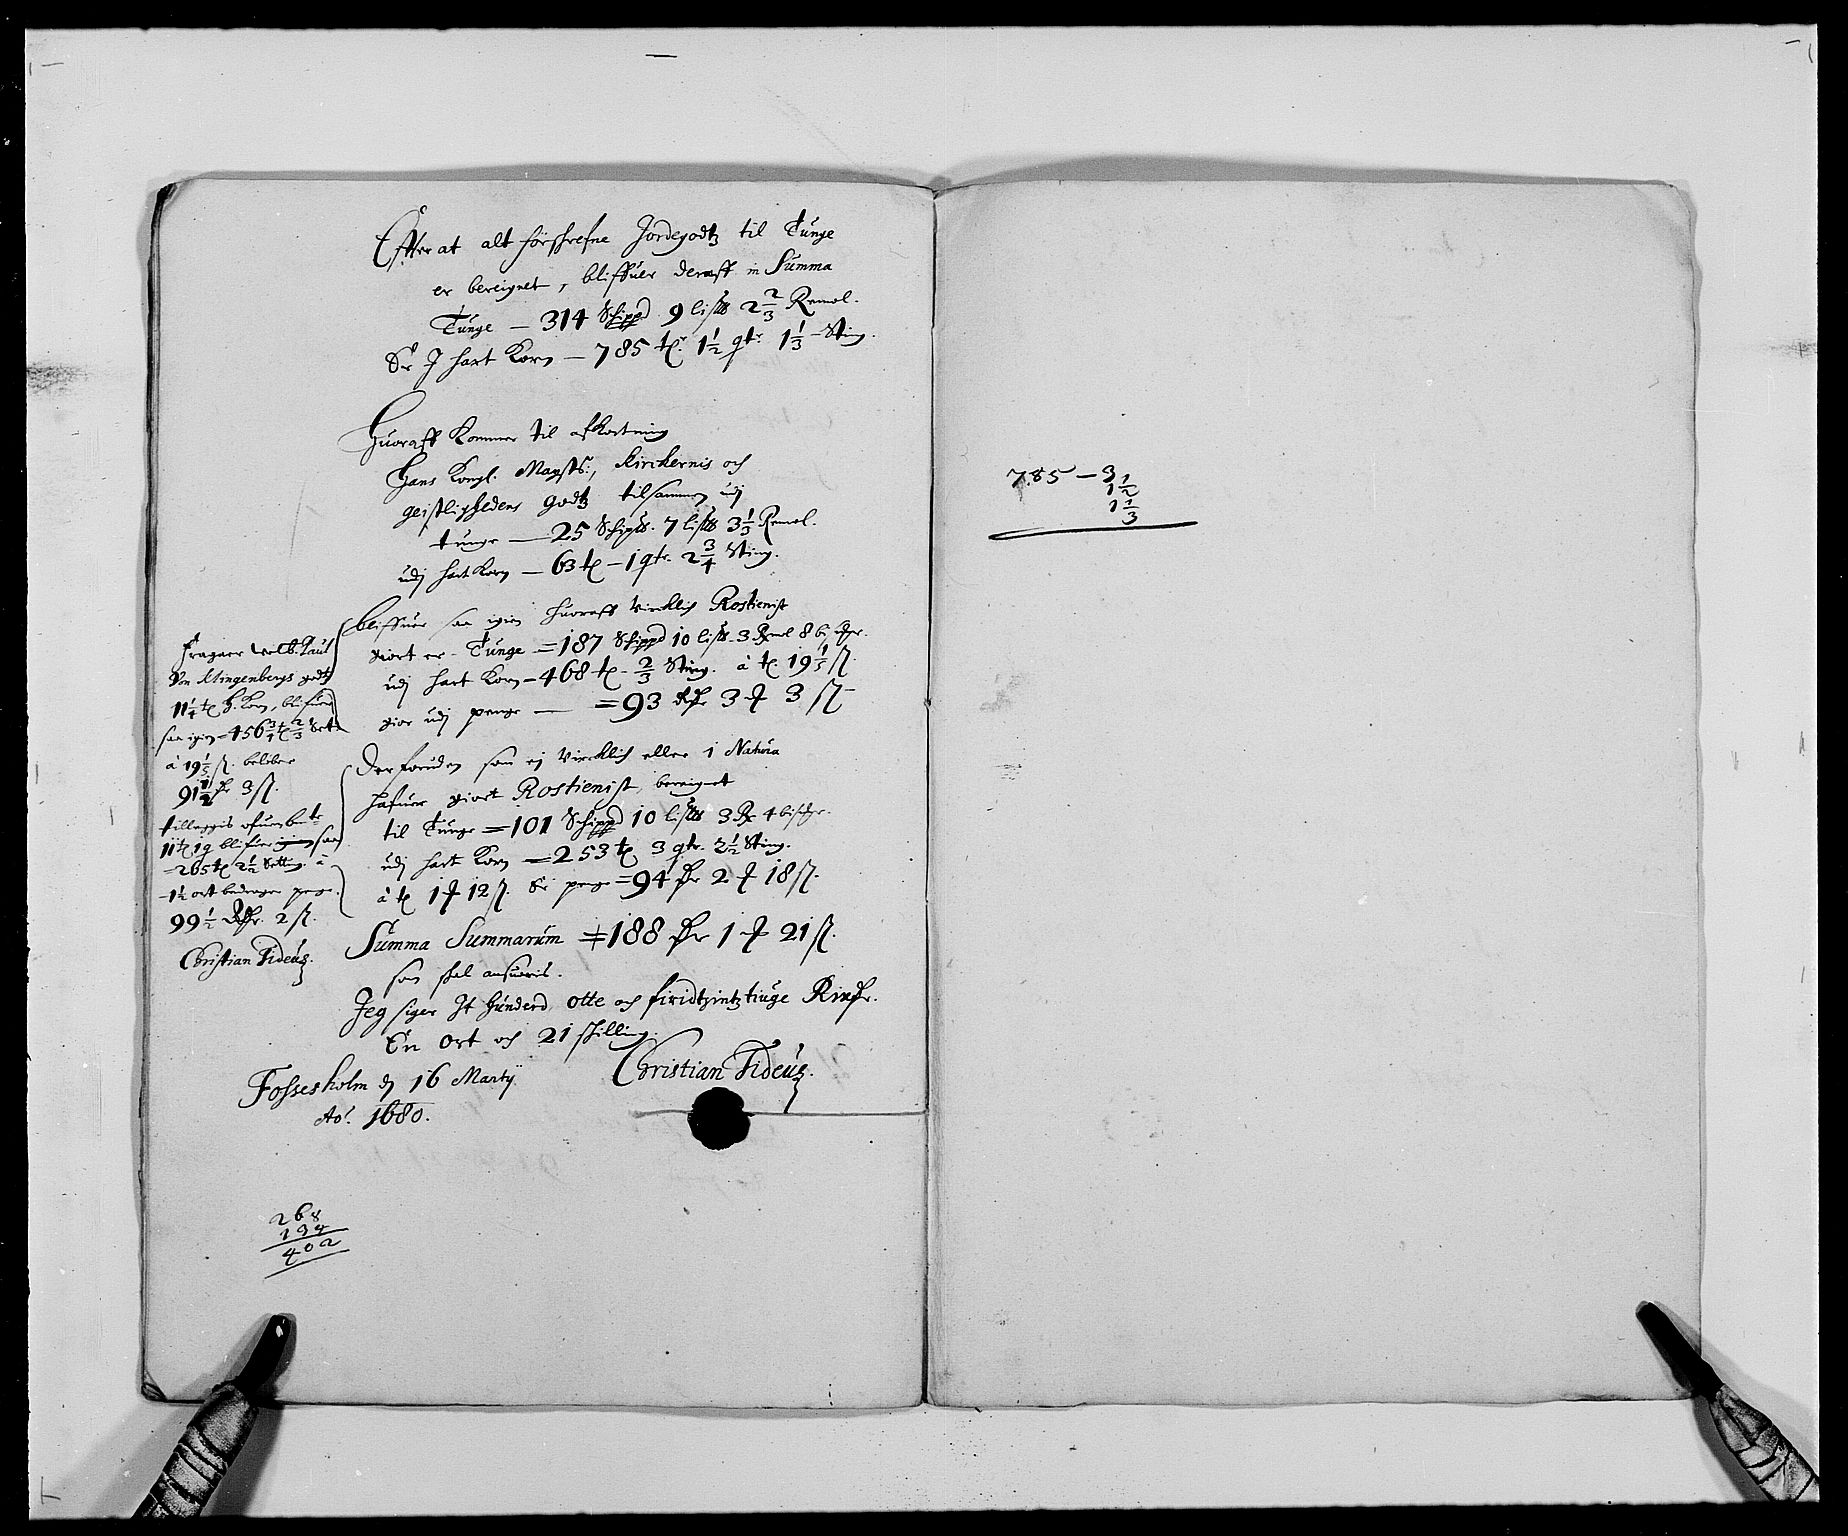 Effter at alt forschrefne Jordegodtz til Tunge
er bereignet, bliffuer deraff in Summa
Tunge — 314 Schippd 9 lispd 2 2/3 Remol.
Er J hart Korn — 785 tr. 1 1/2 qtr. 1 1/3 Sting.
Huoraff Kommer til afkortning
Hans Kongl. Maysts:, Kirckernis och
geistlighedens godtz tilsammen udj
tunge — 25 Schipd. 7 lispd 3 1/3 Remol.
udj hart Korn — 63 t — 1 qtr. 2 3/4 Sting.
bliffuer saa igien huoraff Virklich Rostienist
giort er - Tunge = 187 Schippd 10 lispd. 3 Rmol 8 bispr.
udj hart Korn - 468 t - 2/3 Sting. à t. 19 1/5 ß.
giør udj penge — = 93 Rdr 3 ort 3 ß
Derforuden som ej Vircklich eller i Natura
hafuer giort Rostienist, bereignet
til Tunge = 101 Schippd 10 lispd 3 R 4 bispr.
udj hart Korn = 253 t 3 qtr. 2 1/2 Sting.
à t 1 ort 12 ß. Er penge = 94 dr 2 ort 18 ß.
Summa Summarum = 188 dr 1 ort 21 ß.
som skal ansuaris.
Jeg siger It Hunderd, otte och firidtzintztiuge Rixdr.
En ort och 21 skilling.
Fossesholm d 16 Martij
Ao. 1680.
Christian Tideus.
Fragaar welb. Paul
Von Klingenbergs godtz
11 1/4 t h. Korn, blifuer
saa igien = 456 3/4 t 2/3 Set
à 19 1/5 ß. beløber
91 1/2 dr 3 ß.
tilleggis ofuenbete
11 t 1 q blifuer saa
= 265 t 2 1/2 Setting à
- 1 1/2 ort bedrager penge
99 1/2 Rdr. 2 ß.
Christian Tideus.
268
134
402
785 — 3
1 1/2
1 1/3